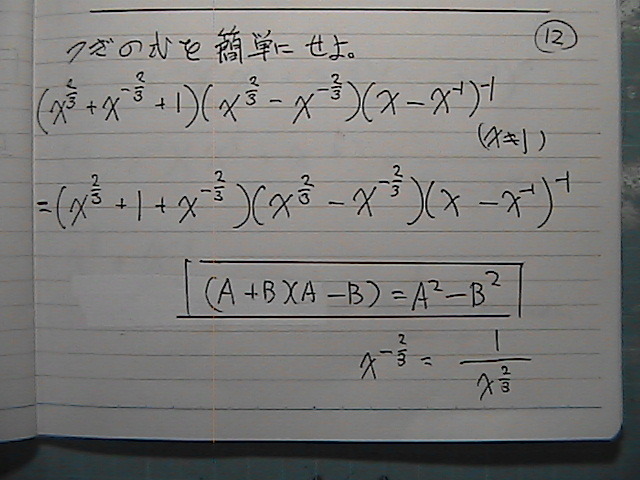 ⑫
つぎの式を簡単にせよ。
(x^{\frac{2}{3}} + x^{-\frac{2}{3}} + 1)(x^{\frac{2}{3}} - x^{-\frac{2}{3}})(x - x^{-1})^{-1}
(x ≠ 1)
= (x^{\frac{2}{3}} + 1 + x^{-\frac{2}{3}})(x^{\frac{2}{3}} - x^{-\frac{2}{3}})(x - x^{-1})^{-1}
(A + B)(A - B) = A^2 - B^2
x^{-\frac{2}{3}} = \frac{1}{x^{\frac{2}{3}}}